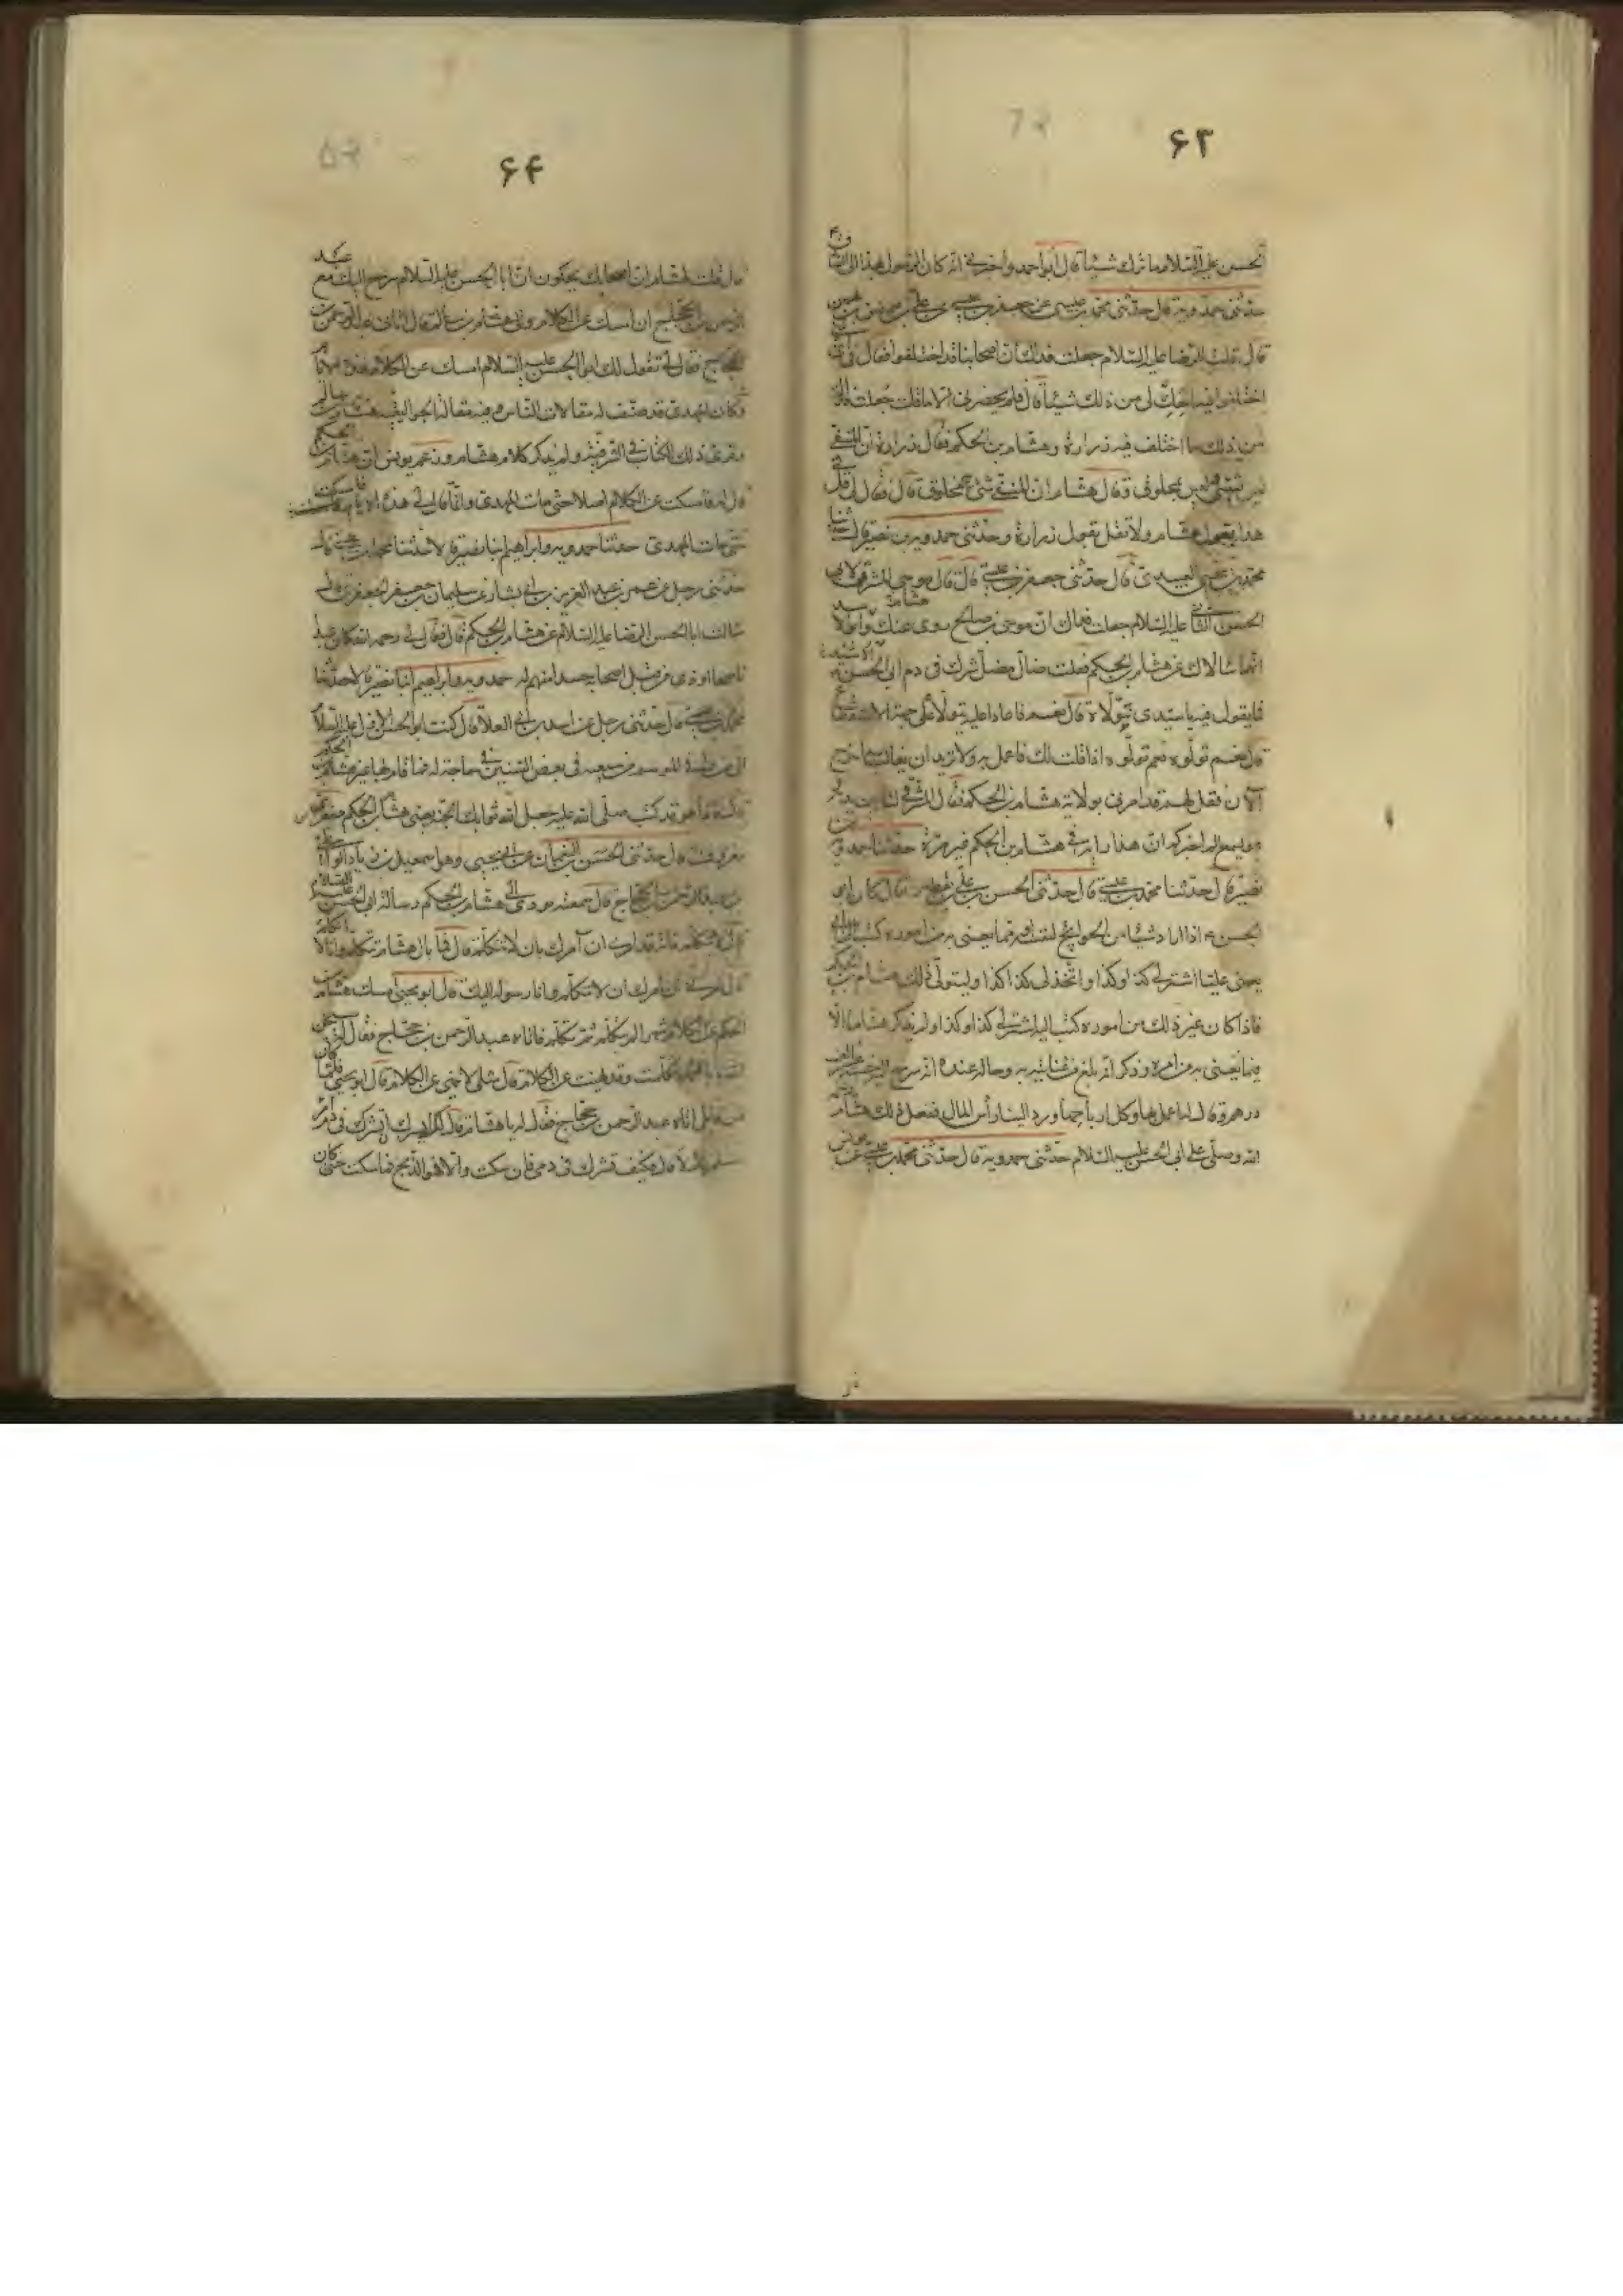 ۶۳
الحسن عليه السلام وما ترك شيئاً قال أبو احمد وأخبرني انه كان الرسول بهذا الى
حدثني حمدويه قال حدثني محمد بن عيسى عن جعفر بن عيسى عن علي بن يونس بن
قال قلت للرضا عليه السلام جعلت فداك ان اصحابنا قد اختلفوا فقال في اى
اختلفوا فيه احك لي من ذلك شيئاً قال فلم يحضرني الا ما قلت جعلت فداك
من ذلك ما اختلف فيه زرارة وهشام بن الحكم فقال زرارة ان النفى
ليس بشئ وليس بمخلوق وقال هشام ان النفى شئ مخلوق قال فقال لي قل
هذا بقول هشام ولا تقل بقول زرارة وحدثني حمدويه بن نصير قال حدثنا
محمد بن عيسى العبيدي قال حدثني جعفر بن عيسى قال قال موسى المشرقي لابى
الحسن الثاني عليه السلام جعلت فداك ان هشامى وموسى بن صالح روى عنك وابو الاسد
انهما سألاك عن هشام بن الحكم فقلت ضال مضل شرك في دم ابى الحسن
فما يقول فيه يا سيدى نتولاه قال نعم فاعاد عليه نتولاه على جهة الاستقطاع
قال نعم تولوه نعم تولوه اذا قلت لك فاعمل به ولا تريد ان تغالب به اخرج
الآن فقل لهم قد امرنى بولاية هشام بن الحكم فقال المشرقي لنا بين يديه
وهو يسمع الم اخبركم ان هذا رايه في هشام بن الحكم غير مرة حدثنا حمدويه بن
نصير قال حدثنا محمد بن عيسى قال حدثني الحسن بن علي بن يقطين قال كان ابو
الحسن ع اذا اراد شيئا من الحوائج لنفسه او مما يعنى به من اموره كتب الى ابى
يعنى عليا اشتر لي كذا وكذا او اتخذ لي كذا كذا وليتولى ذلك هشام بن الحكم
فاذا كان غير ذلك من اموره كتب اليه اشتر لي كذا وكذا ولم يذكر هشاما الا
فيما يعنى به من امره وذكر انه بلغ من عنايته به وحاله عنده انه سرح اليه خمسة عشر الف
درهم وقال له اعمل بها وكل ارباحها ورد الينا رأس المال ففعل ذلك هشام رحمه
الله وصلى على ابي الحسن عليه السلام حدثني حمدويه قال حدثني محمد بن عيسى عن يونس
۶۴
قال قلت لهشام ان اصحابك يحكون ان ابا الحسن عليه السلام سرح اليك مع عبد
الرحمن بن الحجاج ان امسك عن الكلام والى هشام بن سالم قال اتانى عبد الرحمن
الحجاج فقال لي يقول لك ابو الحسن عليه السلام امسك عن الكلام هذه الايام
وكان المهدي قد صنف له مقالات الناس وفيه مقالة الجواليقية هشام بن سالم
وقرئ ذلك الكتاب في الشرقية ولم يذكر كلام هشام وزعم يونس ان هشام بن الحكم
قال له فامسكت عن الكلام اصلا حتى مات المهدى وانما قال لي هذه الايام فامسكت
حتى مات المهدى حدثنا حمدويه وابراهيم ابنا نصير قالا حدثنا محمد بن عيسى قال
حدثني رجل عن عمر بن عبد العزيز بن ابي بشار عن سليمان بن جعفر الجعفري قال
سألت ابا الحسن الرضا عليه السلام عن هشام بن الحكم قال فقال لي رحمه الله كان عبدا
ناصحا اوذى من قبل اصحابه حسدا منهم له حمدويه وابراهيم ابنا نصير قالا حدثنا
محمد بن عيسى قال حدثني رجل عن اسد بن ابي العلاء قال كتب ابو الحسن الاول عليه السلام
الى من وافى الموسم من شيعته في بعض السنين في حاجة له فما قام بها غير هشام بن الحكم
قال فاذا هو قد كتب صلى الله عليه جعل الله ثوابك الجنة يعنى هشام بن الحكم جعفر
معروف قال حدثني الحسن بن النعمان عن ابي يحيى وهو اسمعيل بن زياد الواسطى
عن عبد الرحمن بن الحجاج قال سمعته يؤدى الى هشام بن الحكم رسالة ابى الحسن عليه السلام
قال لا تتكلم فانه قد امرنى ان آمرك بان لا تتكلم قال فما بال هشام يتكلم وانا لا اتكلم
قال امرنى ان آمرك ان لا تتكلم وانا رسوله اليك قال ابو يحيى امسك هشام بن
الحكم عن الكلام شهرا لم يتكلم ثم تكلم فاتاه عبد الرحمن بن الحجاج فقال له سبحان
الله يا ابا محمد تكلمت وقد نهيت عن الكلام قال مثلى لا ينهى عن الكلام قال ابو يحيى فلما كان
من قابل اتاه عبد الرحمن بن الحجاج فقال له يا هشام قال لك ايسرك ان تشرك في دم امرئ
مسلم قال لا قال وكيف تشرك في دمي فان سكت والا فهو الذبح فما سكت حتى كان